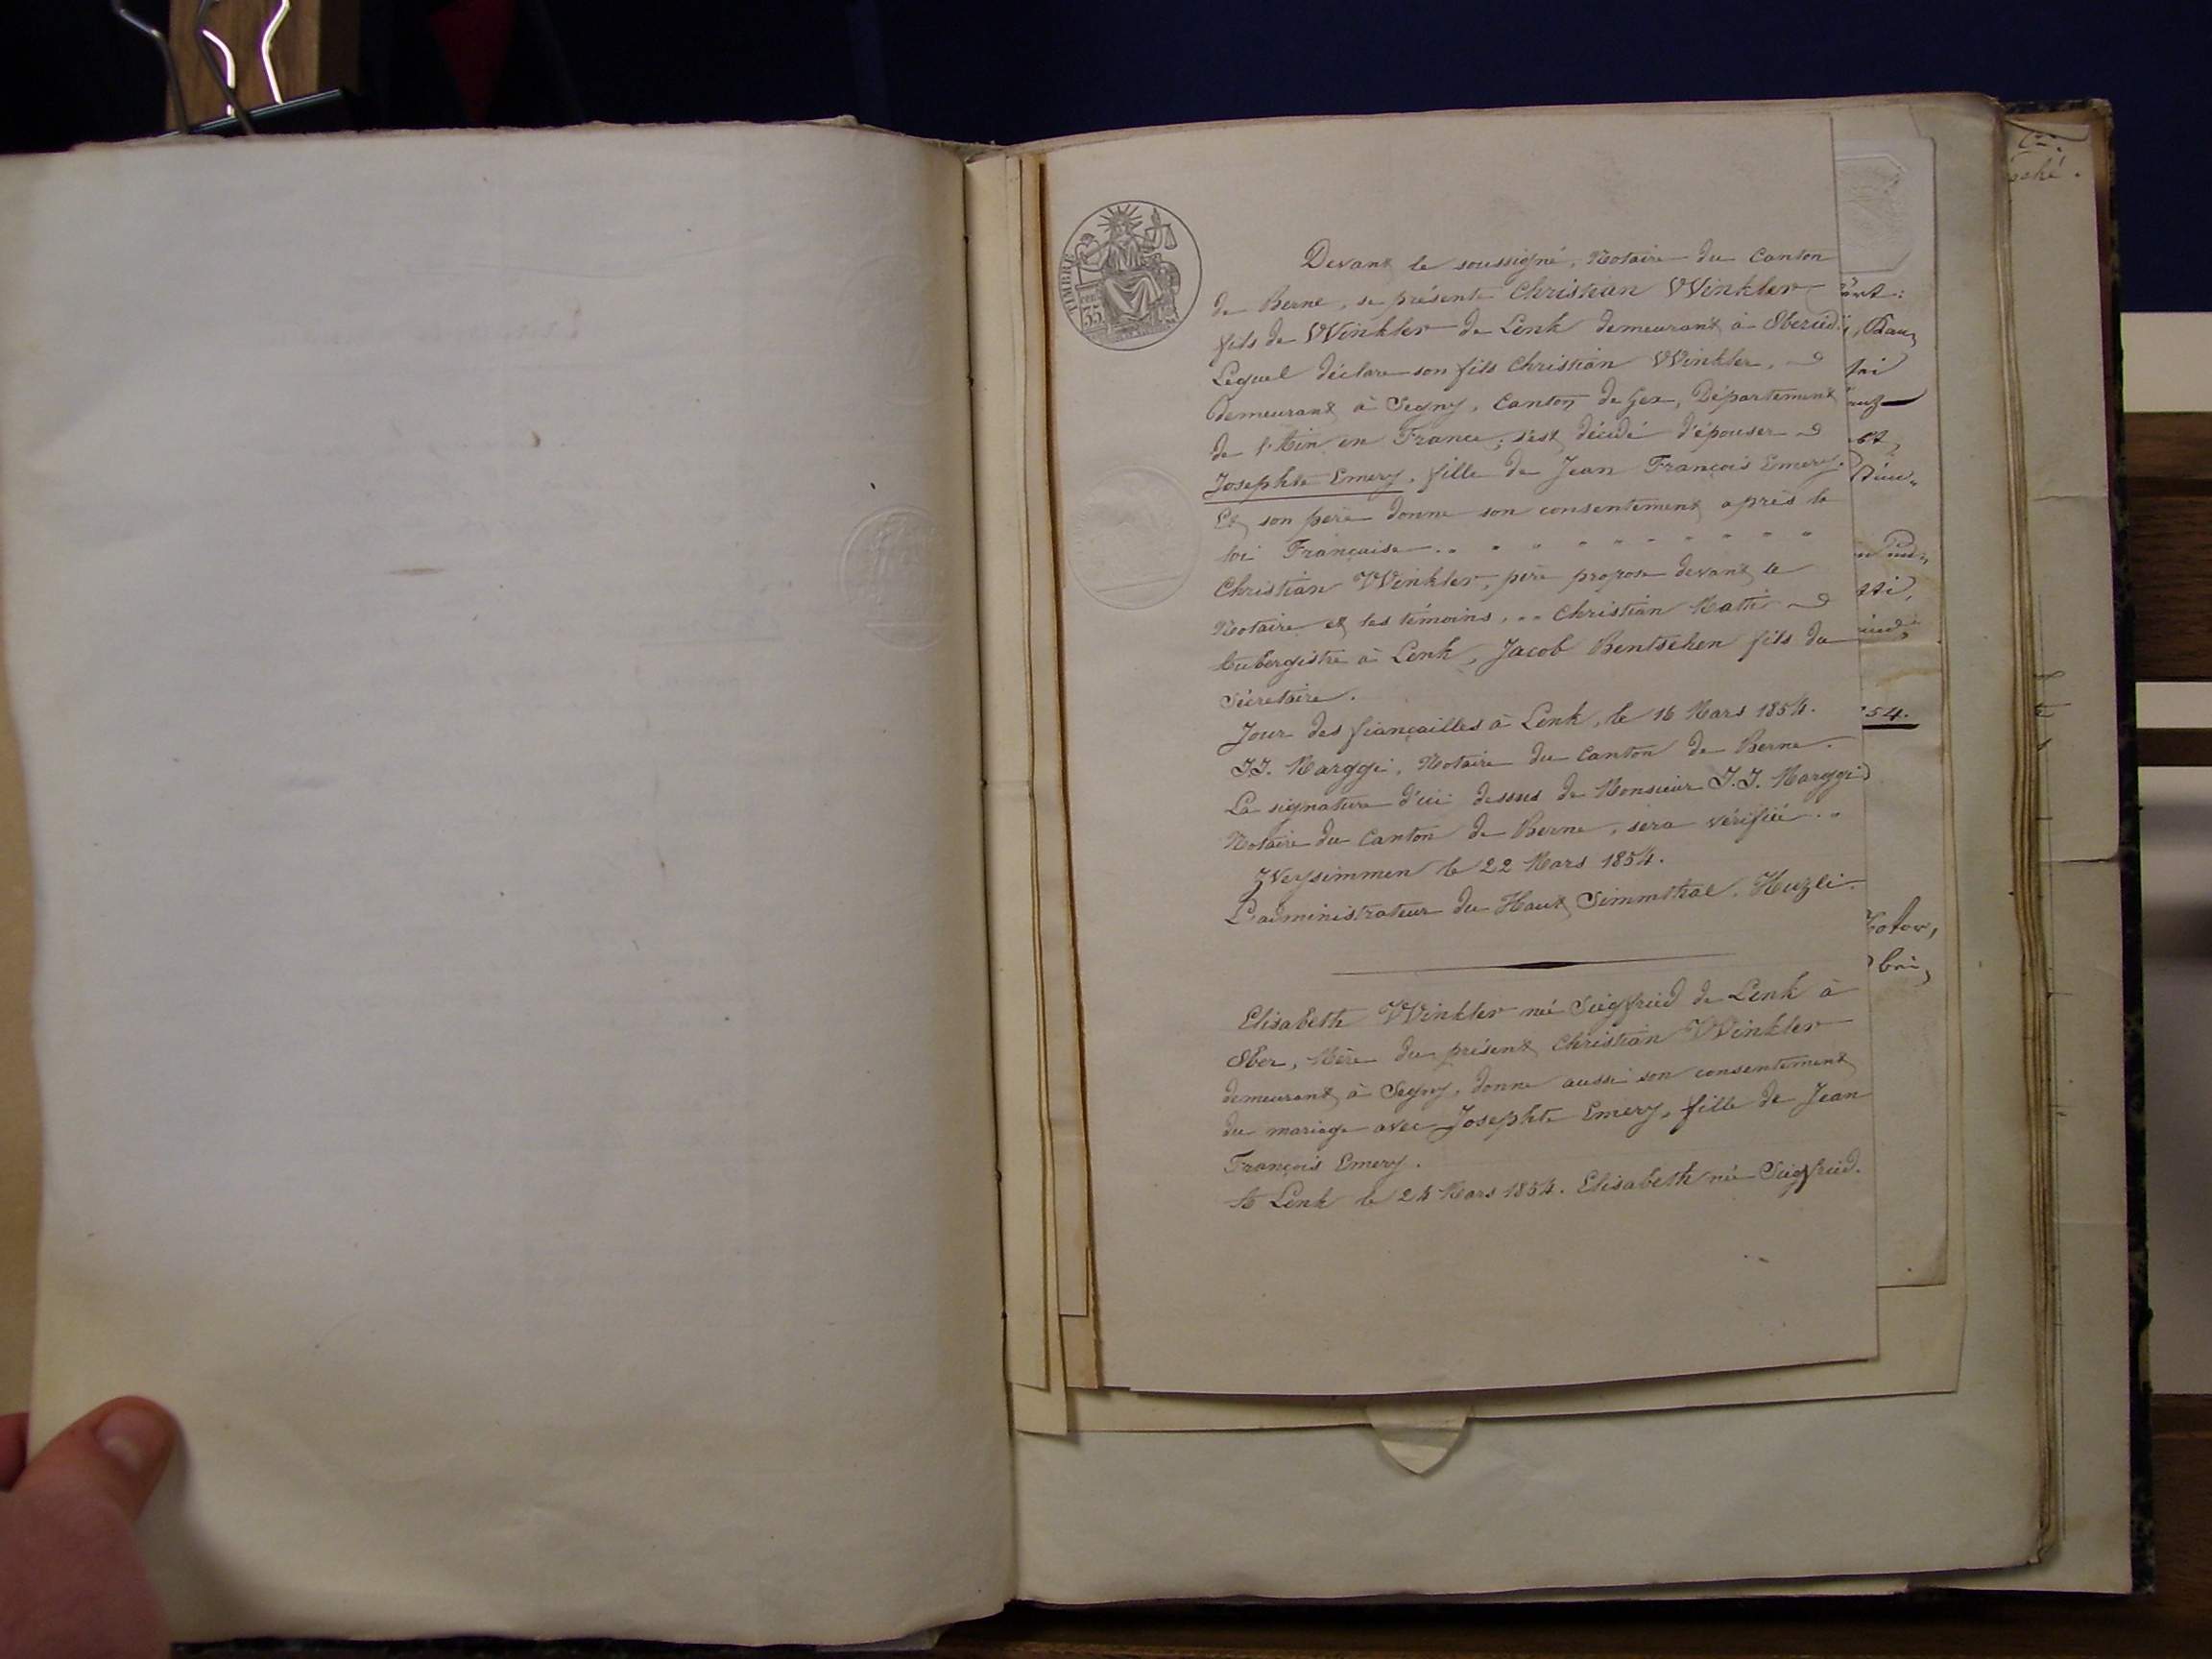 TIMBRE
35
Devant le soussigné, Notaire du Canton
de Berne, se présente Christian Winkler
fils de Winkler de Lenk demeurant à Oberied
Lequel déclare son fils Christian Winkler,
Demeurant à Segny, Canton de Gex, Département
de l'Ain en France; s'est décidé d'épouser
Josephte Emery, fille de Jean François Emery.
Et son père donne son consentement après la
loi Française
Christian Winkler, père propose devant le
Notaire et les témoins, Christian Matti
Aubergiste à Lenk, Jacob Bentschen fils du
Sécretaire.
Jour des fiançailles à Lenk, le 16 Mars 1854.
J.J. Marggi, Notaire du Canton de Berne.
La signature d'ici dessus de Monsieur J.J. Marggi
Notaire du Canton de Berne, sera vérifiée
Zweysimmen le 22 Mars 1854.
L'administrateur du Haut Simmthal. Huzli
Elisabeth Winkler né Siegfried de Lenk à
Ober, Mère du présent Christian Winkler
demeurant à Segny, donne aussi son consentement
du mariage avec Josephte Emery, fille de Jean
François Emery.
A Lenk le 24 Mars 1854. Elisabeth né Siegfried.
54.